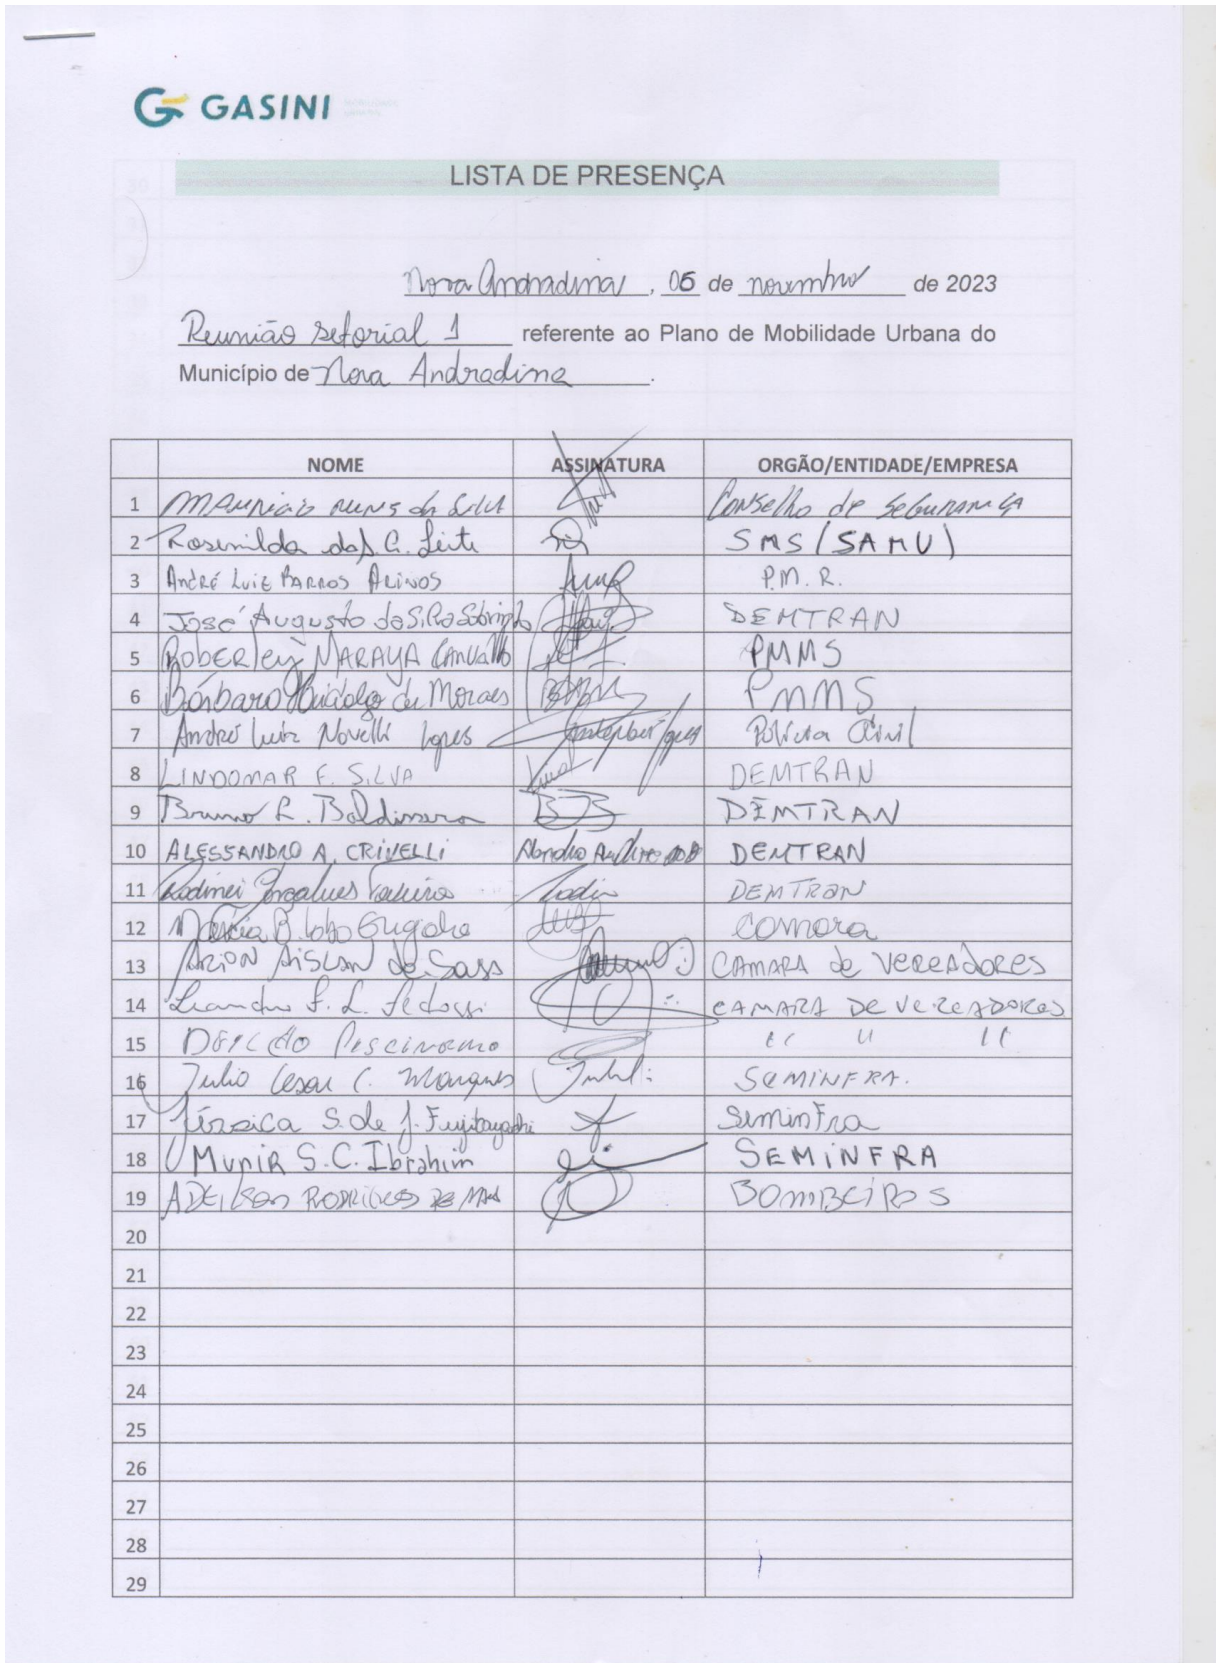 GASINI
LISTA DE PRESENÇA
Nova Andradina, 06 de novembro de 2023
Reunião setorial 1 referente ao Plano de Mobilidade Urbana do
Município de Nova Andradina.
NOME ASSINATURA ORGÃO/ENTIDADE/EMPRESA
1 da Silva Conselho de Segurança
2 Rosenilda dos G. Leite SMS (SAMU)
3 André Luiz Barros Arinos P.M.R.
4 José Augusto da Silva Sobrinho DEMTRAN
5 Roberley MARAYA Carvalho PMMS
6 Bárbara de Moraes PMMS
7 André Luiz Novelli Lopes Polícia Civil
8 LINDOMAR F. SILVA DEMTRAN
9 Bruno L. Baldissera DEMTRAN
10 ALESSANDRO A. CRIVELLI DEMTRAN
11 Gonçalves DEMTRAN
12 Márcia B. Lobo Camara
13 ARION AISLAN de Sousa CAMARA de VEREADORES
14 Leandro F. L. Fedossi CAMARA DE VEREADORES
15 " " "
16 Julio Cesar C. Marques SEMINFRA.
17 Jéssica S. de J. Fujibayashi SeminFra
18 Munir S.C. Ibrahim SEMINFRA
19 ADEILSON RODRIGUES BOMBEIROS
20
21
22
23
24
25
26
27
28
29